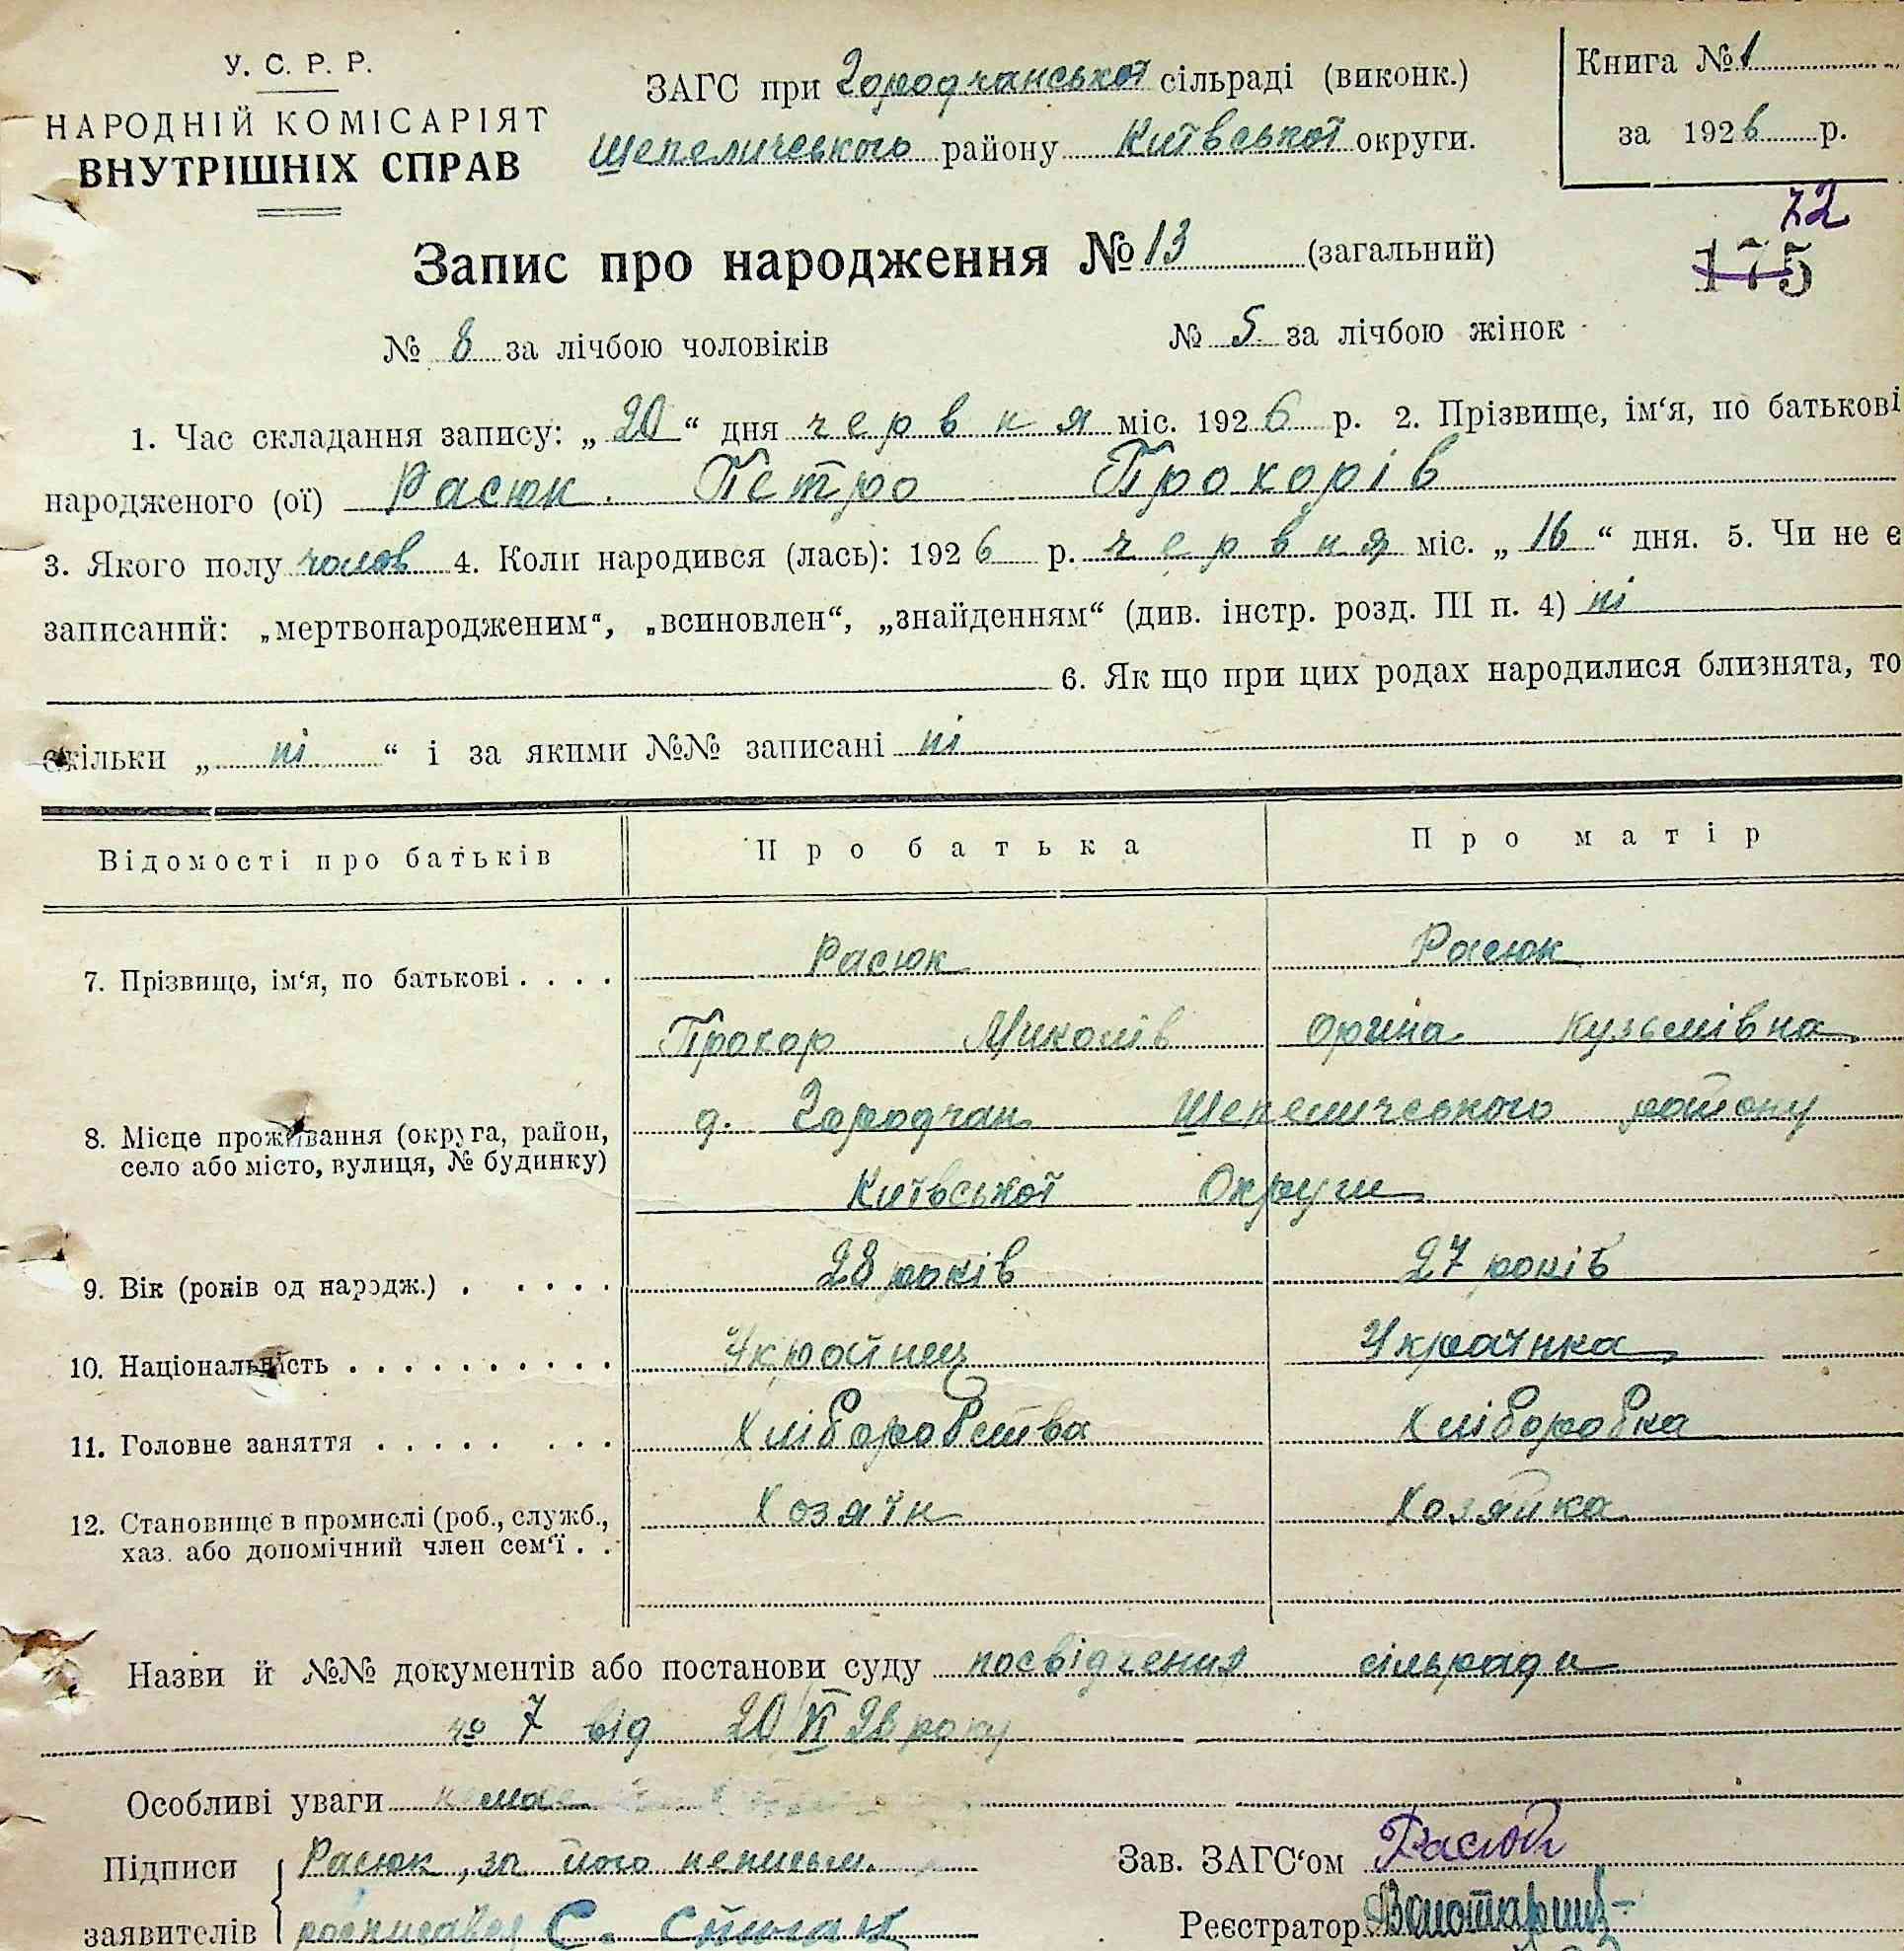 У. С. Р. Р.
НАРОДНІЙ КОМІСАРІЯТ
ВНУТРІШНІХ СПРАВ
ЗАГС при Городчанської сільраді (виконк.)
Шепелицького району Київської округи.
Книга № 1
за 1926 р.
72
175
Запис про народження № 13 (загальний)
№ 8 за лічбою чоловіків № 5 за лічбою жінок
1. Час складання запису: „20“ дня червня міс. 1926 р. 2. Прізвище, ім‘я, по батькові
народженого (ої) Расюк Петро Прохорів
3. Якого полу чолов 4. Коли народився (лась): 1926 р. червня міс. „16“ дня. 5. Чи не є
записаний: „мертвонародженим“, „всиновлен“, „знайденням“ (див. інстр. розд. III п. 4) ні
6. Як що при цих родах народилися близнята, то
скільки „ ні “ і за якими №№ записані ні
Відомості про батьків Про батька Про матір
7. Прізвище, ім‘я, по батькові . . . . Расюк Расюк
Прохор Миколів Орина Кузьмівна
8. Місце проживання (округа, район, село або місто, вулиця, № будинку) д. Городчан Шепелицького району
Київської Округи
9. Вік (років од народж.) . . . . . 28 років 27 років
10. Національність . . . . . . . . . . Украйнец Українка
11. Головне заняття . . . . . . . . Хліборобства Хлiборобка
12. Становище в промислі (роб., служб., Хозяїн Хозяйка
хаз. або допомічний член сем‘ї . .
Назви й №№ документів або постанови суду посвідчення сільради
№ 7 від 20/VI 26 року
Особливі уваги немає
Підписи Расюк, за його неписьм.
заявителів росписавсь С.
Зав. ЗАГС‘ом Расюк
Реєстратор